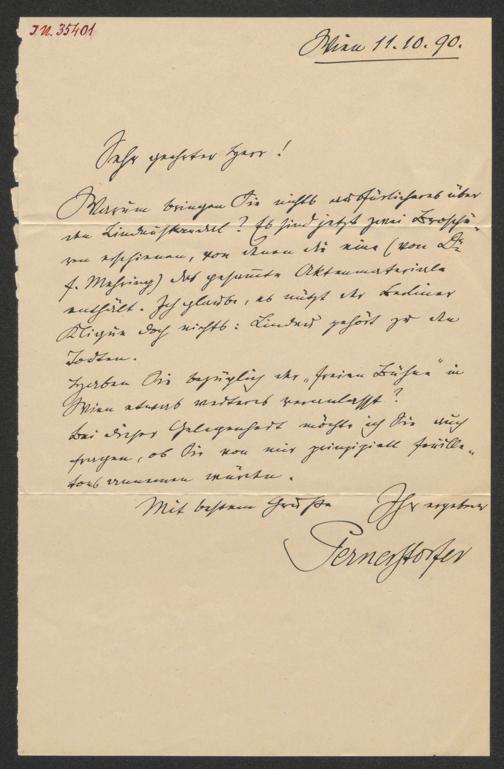 I.N. 35401
Wien 11.10.90.
Sehr geehrter Herr!
Warum bringen Sie nichts ausfürlicheres über
den Lindauskandal? Es sind jetzt zwei Broschü-
ren erschienen, von denen die eine (von Dr.
F. Mehring) das gesammte Aktenmateriale
enthält. Ich glaube, es nützt der Berliner
Klique doch nichts: Lindau gehört zu den
Todten.
Haben Sie bezüglich der „freien Bühne" in
Wien etwas weiteres veranlasst?
Bei dieser Gelegenheit möchte ich Sie auch
fragen, ob Sie von mir prinzipiell feuille-
tons annemen würden.
Mit bestem Gruße Ihr ergebener
Pernerstorfer